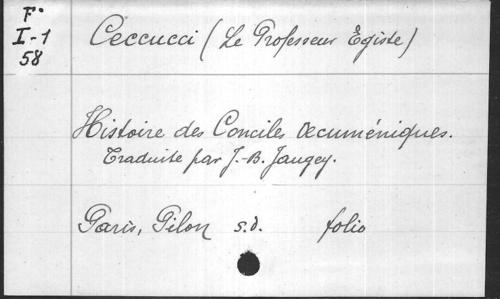 F°
I-1
58
Ceccucci (Le Professeur Egiste)
Histoire des Conciles Œcuméniques.
Traduite par J.-B. Jaugey.
Paris, Pilon s.d. folio